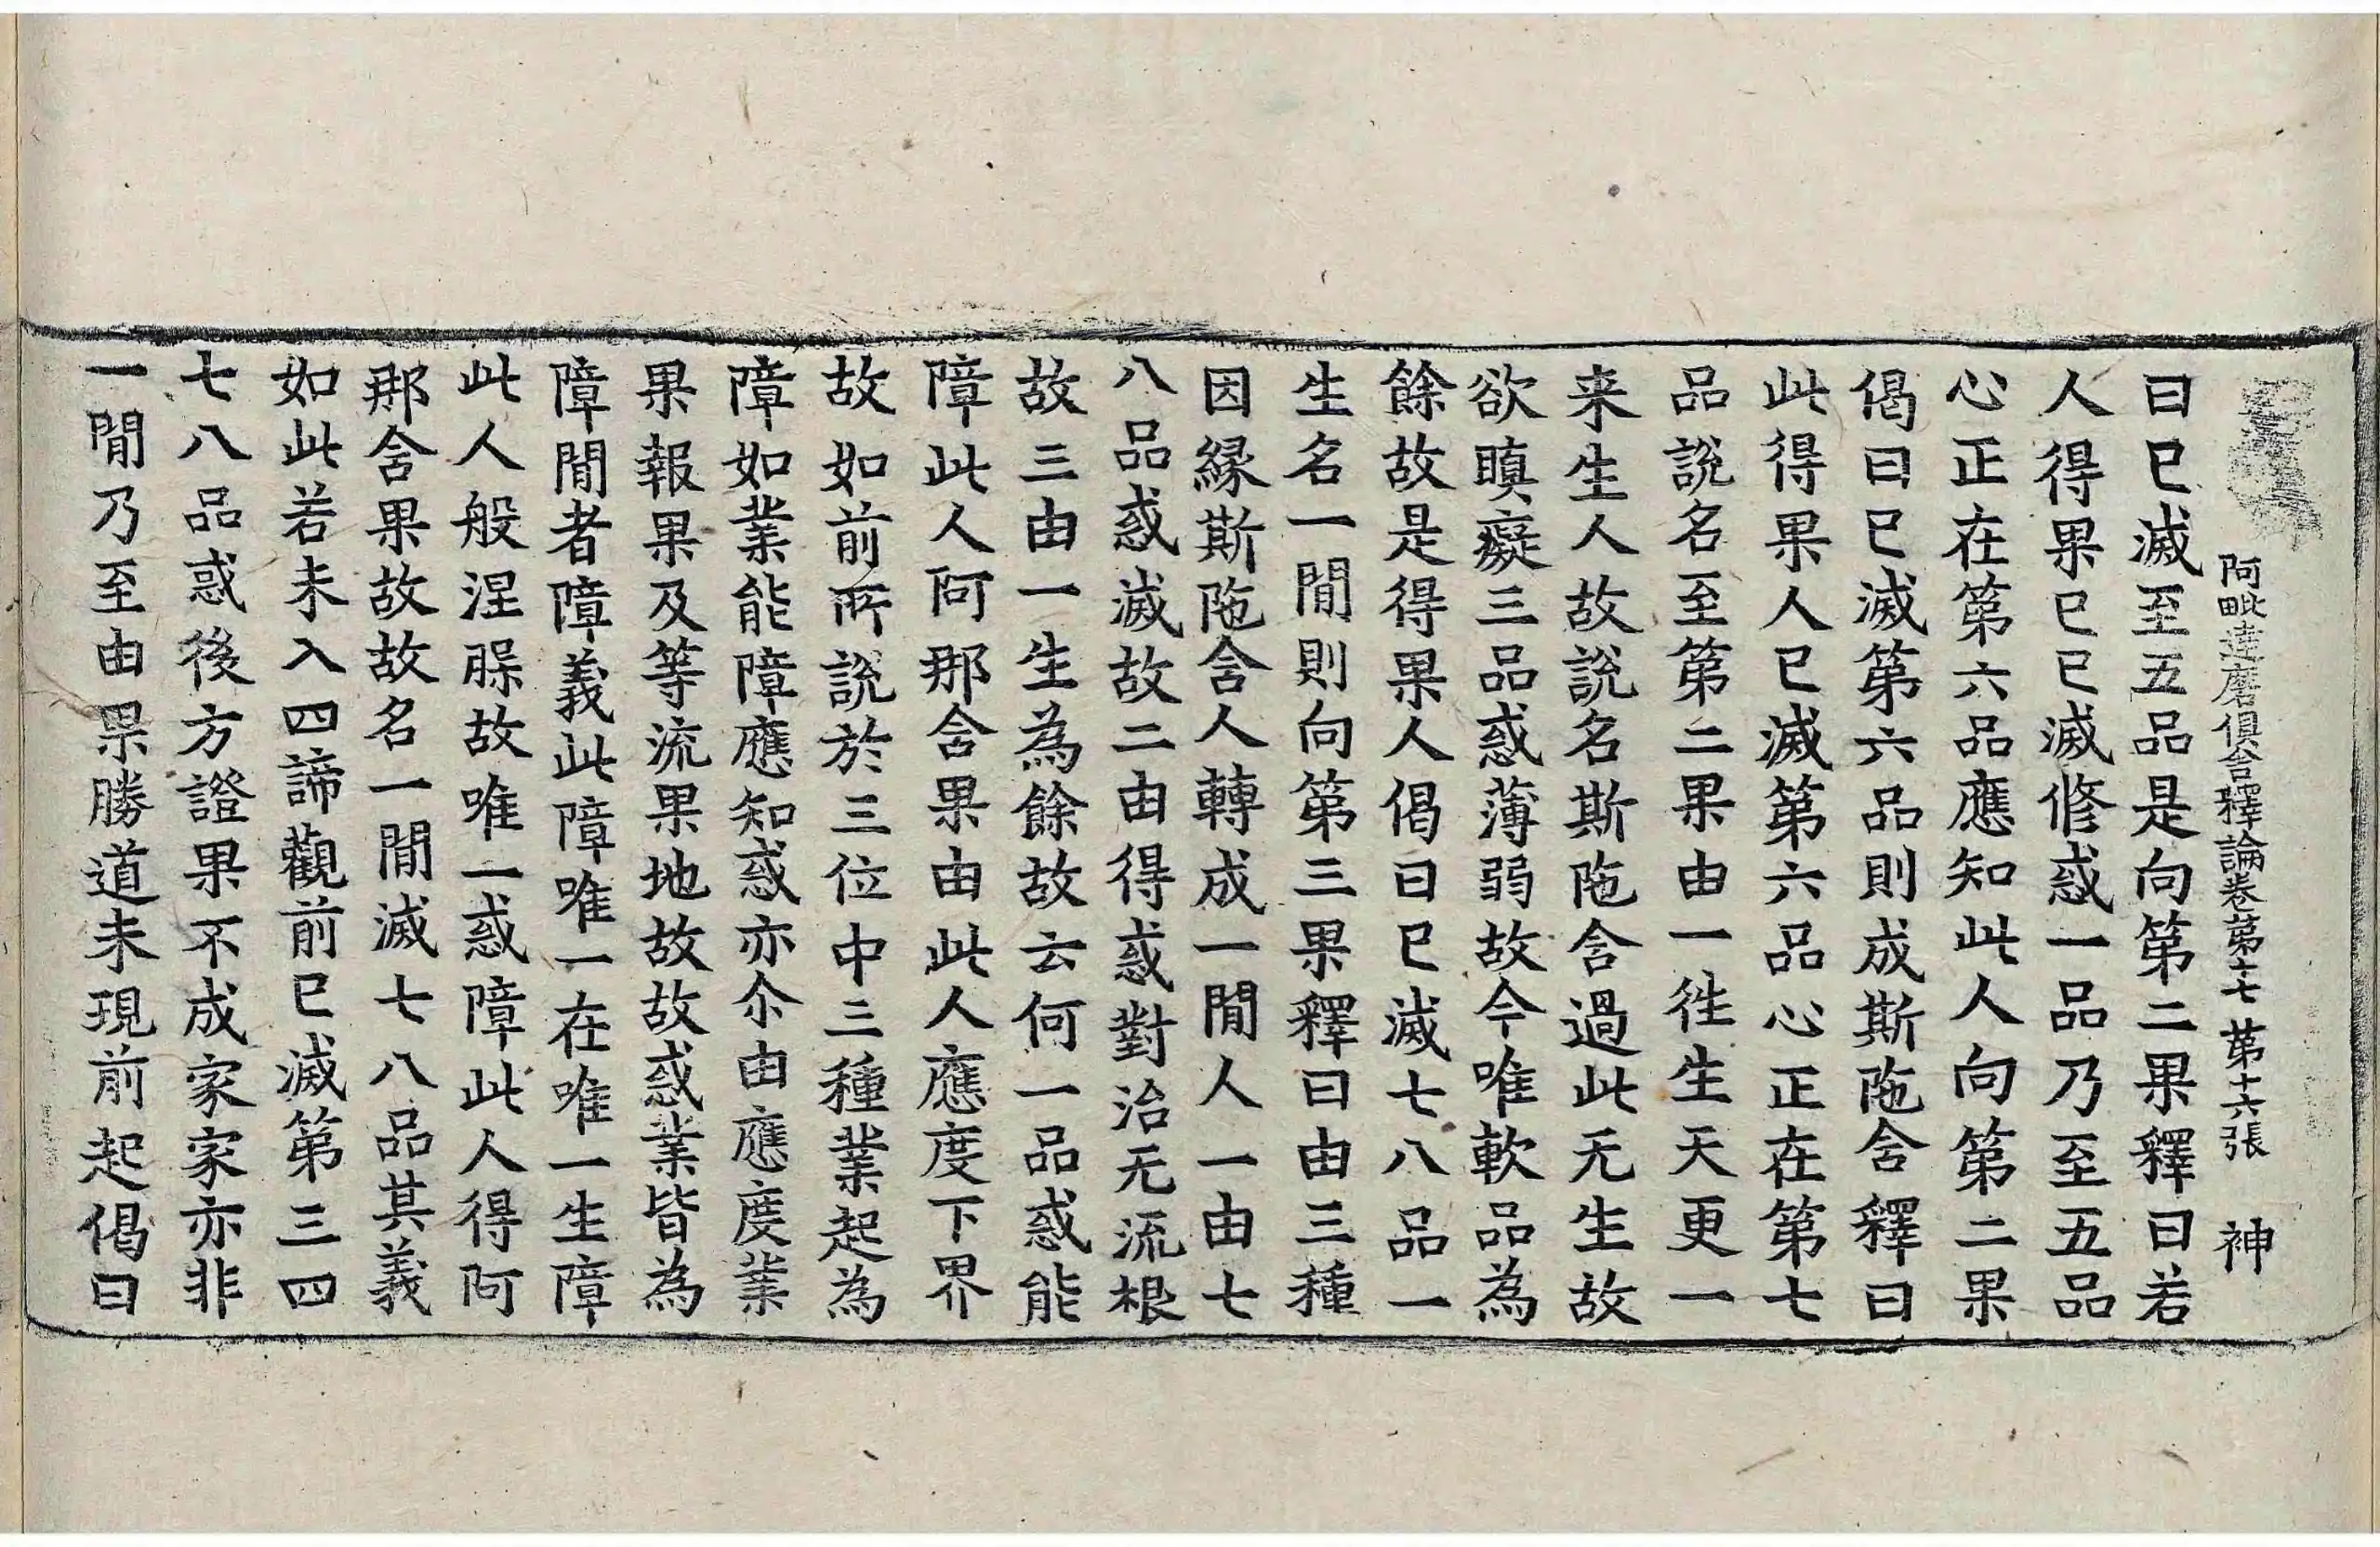 阿毗達磨俱舍釋論卷第十七 第十六張 神
曰已滅至五品是向第二果釋曰若
人得果已已滅修惑一品乃至五品
心正在第六品應知此人向第二果
偈曰已滅第六品則成斯陁含釋曰
此得果人已滅第六品心正在第七
品說名至第二果由一徃生天更一
来生人故說名斯陁含過此无生故
欲瞋癡三品惑薄弱故今唯軟品為
餘故是得果人偈曰已滅七八品一
生名一閒則向第三果釋曰由三種
因緣斯陁含人轉成一閒人一由七
八品惑滅故二由得惑對治无流根
故三由一生為餘故云何一品惑能
障此人阿那含果由此人應度下界
故如前所說於三位中三種業起為
障如業能障應知惑亦尒由應度業
果報果及等流果地故故惑業皆為
障閒者障義此障唯一在唯一生障
此人般涅槃故唯一惑障此人得阿
那含果故故名一閒滅七八品其義
如此若未入四諦觀前已滅第三四
七八品惑後方證果不成家家亦非
一閒乃至由果勝道未現前起偈曰